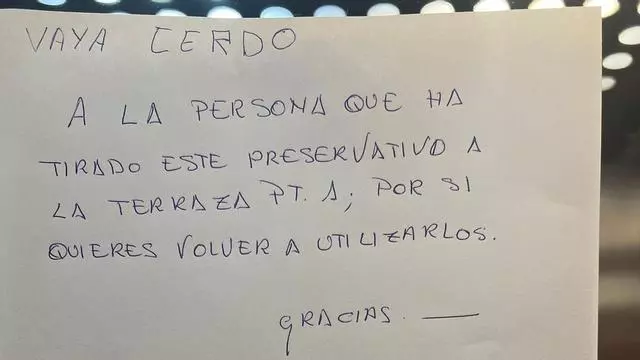 VAYA CERDO
A LA PERSONA QUE HA
TIRADO ESTE PRESERVATIVO A
LA TERRAZA PT. 1; POR SI
QUIERES VOLVER A UTILIZARLOS.
GRACIAS.